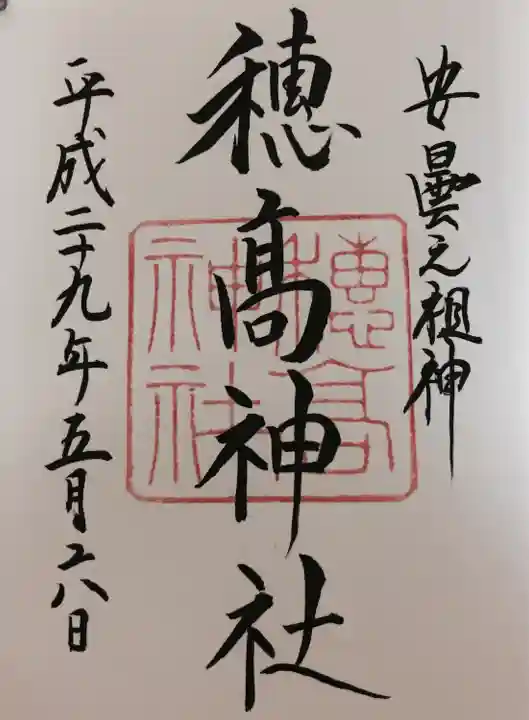 安曇之祖神
穂髙神社
穗高神社
平成二十九年五月二八日